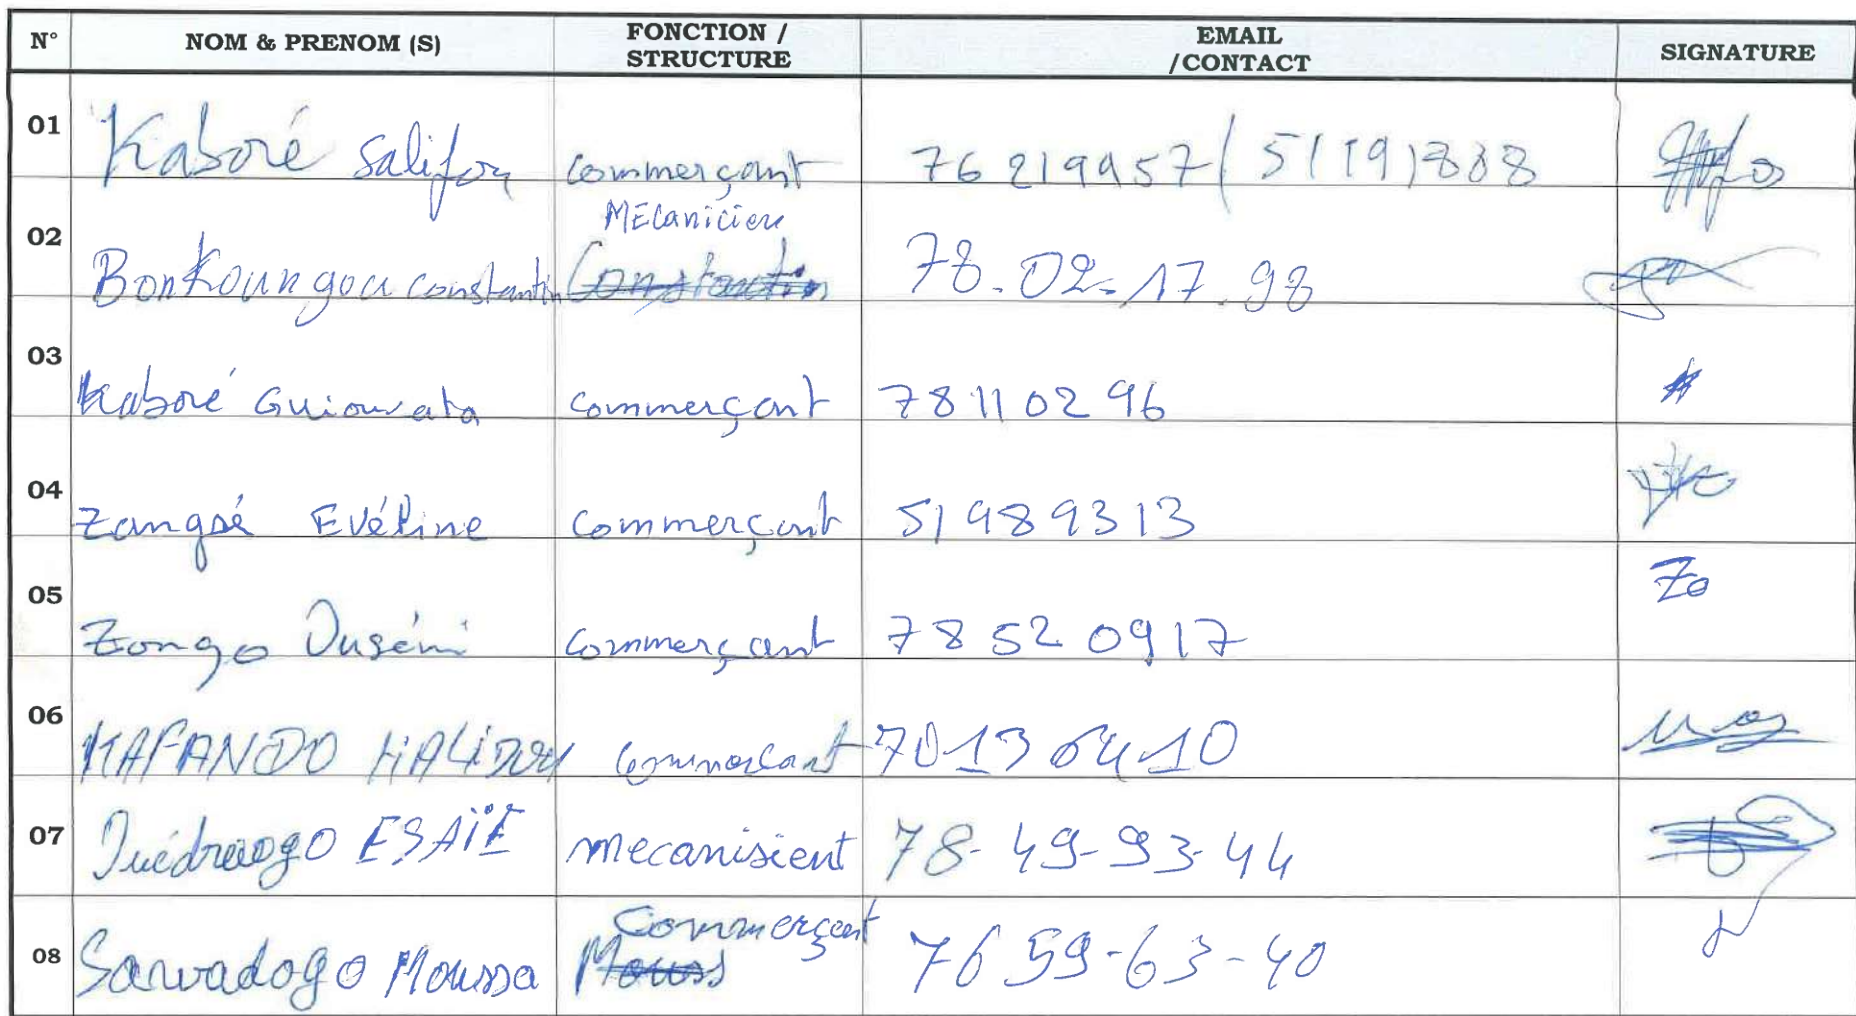 N° NOM & PRENOM (S) FONCTION / STRUCTURE EMAIL /CONTACT SIGNATURE
01 Kaboré Salifou commerçant 76 219957 / 51191888
02 Bonkoungou constantin MEcanicien 78.02.17.98
03 Kaboré Guiourata commerçant 78110296
04 Zangré Evéline commerçant 51989313
05 Zongo Ouséni commerçant 78520917 Zo
06 KAFANDO HALIDOU commercant 70136410
07 Ouédraogo ESAÏE mecanisient 78-49-93-44
08 Sawadogo Moussa Commerçant 76 59-63-40